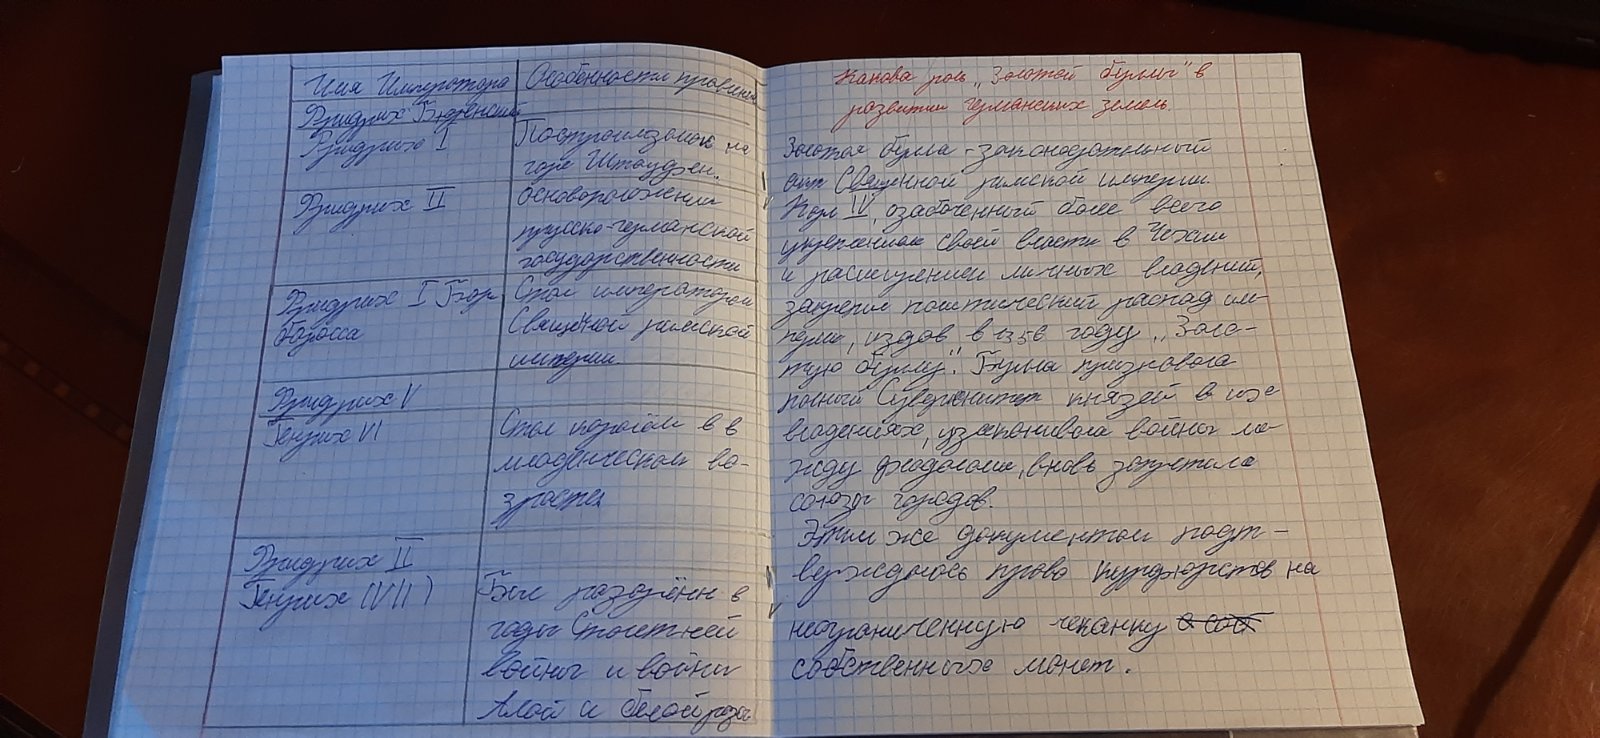 Имя Императора Особенности правления
Фридрих Бюренский
Фридрих I Построил замок на
горе Штауфен.
Фридрих II Основоположник
прусско-германской
государственности
Фридрих I Бар Стал императором
баросса Священой римской
империи
Фридрих V
Генрих VI Стал королём в в
младенческом во-
зрасте
Фридрих II
Генрих (VII) Был разорён в
годы Столетней
войны и войны
Алой и белой розы
Какова роль „Золотой буллы" в
развитии германских земель
Золотая булла - законодательный
акт Священной римской империи.
Карл IV, озабоченный более всего
укреплением своей власти в Чехии
и расширением личных владений,
закрепил политический распад им-
перии, издав в 1356 году „Золо-
тую буллу". Булла признавала
полный Суверенитет князей в их
владениях, узаконивала войны ме-
жду феодалами, вновь запретила
союзы городов.
Этим же документом подт-
верждалось право курфюрстов на
неограниченную чеканку
собственных монет.